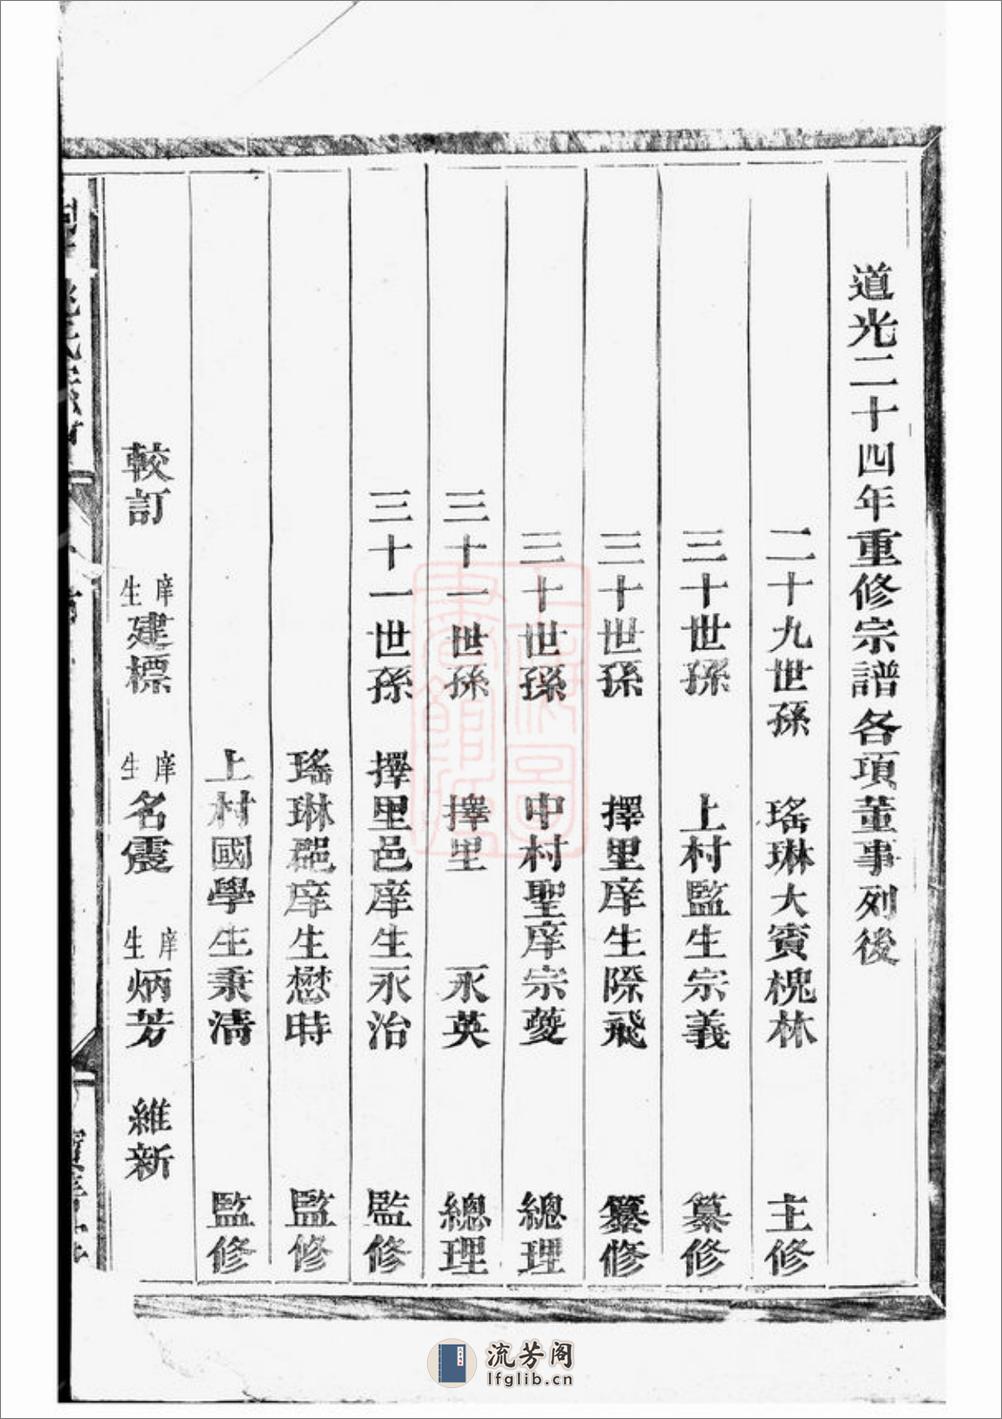 道光二十四年重修宗譜各項董事列後
二十九世孫 瑤琳大賓槐林 主修
三十世孫 上村監生宗義 纂修
三十世孫 擇里庠生際飛 纂修
三十世孫 中村聖庠宗夔 總理
三十一世孫 擇里 永英 總理
三十一世孫 擇里邑庠生永治 監修
瑤琳郡庠生懋時 監修
上村國學生秉清 監修
較訂 庠生建標 庠生名震 庠生炳芳 維新
流芳阁
lfglib.cn